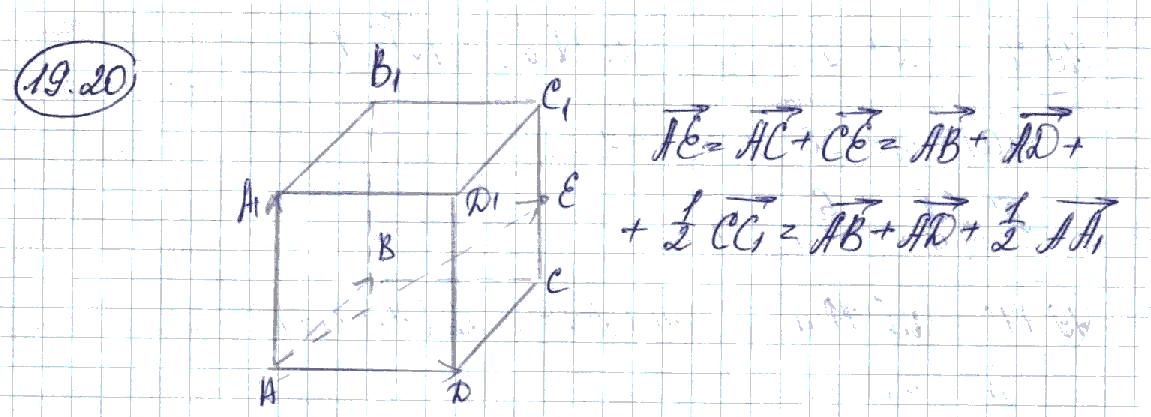 19.20
B₁
C₁
A₁
D₁
E
B
C
A
D
AE = AC + CE = AB + AD +
+ 1/2 CC₁ = AB + AD + 1/2 AA₁